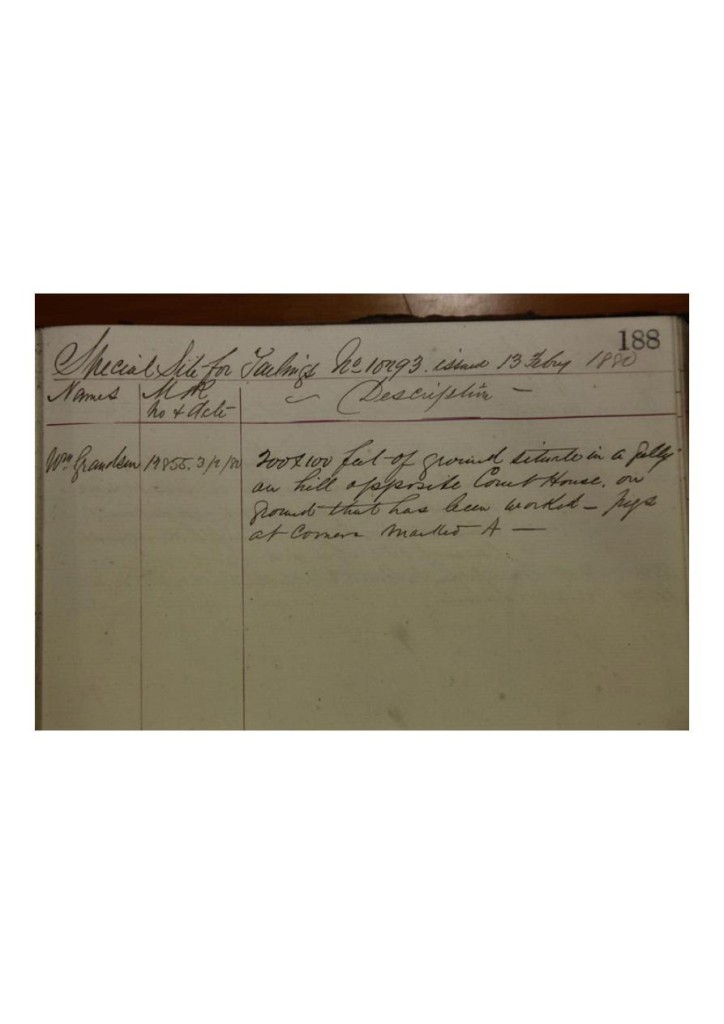 188
Special Site for Tailings No 10293. issued 13 Febry 1880
Names
M R
no & date
Description
Wm Grandson
19855. 3/2/80
200 x 100 feet of ground situate in a gully
on hill opposite Court House. on
ground that has been worked - pegs
at Corners marked A -